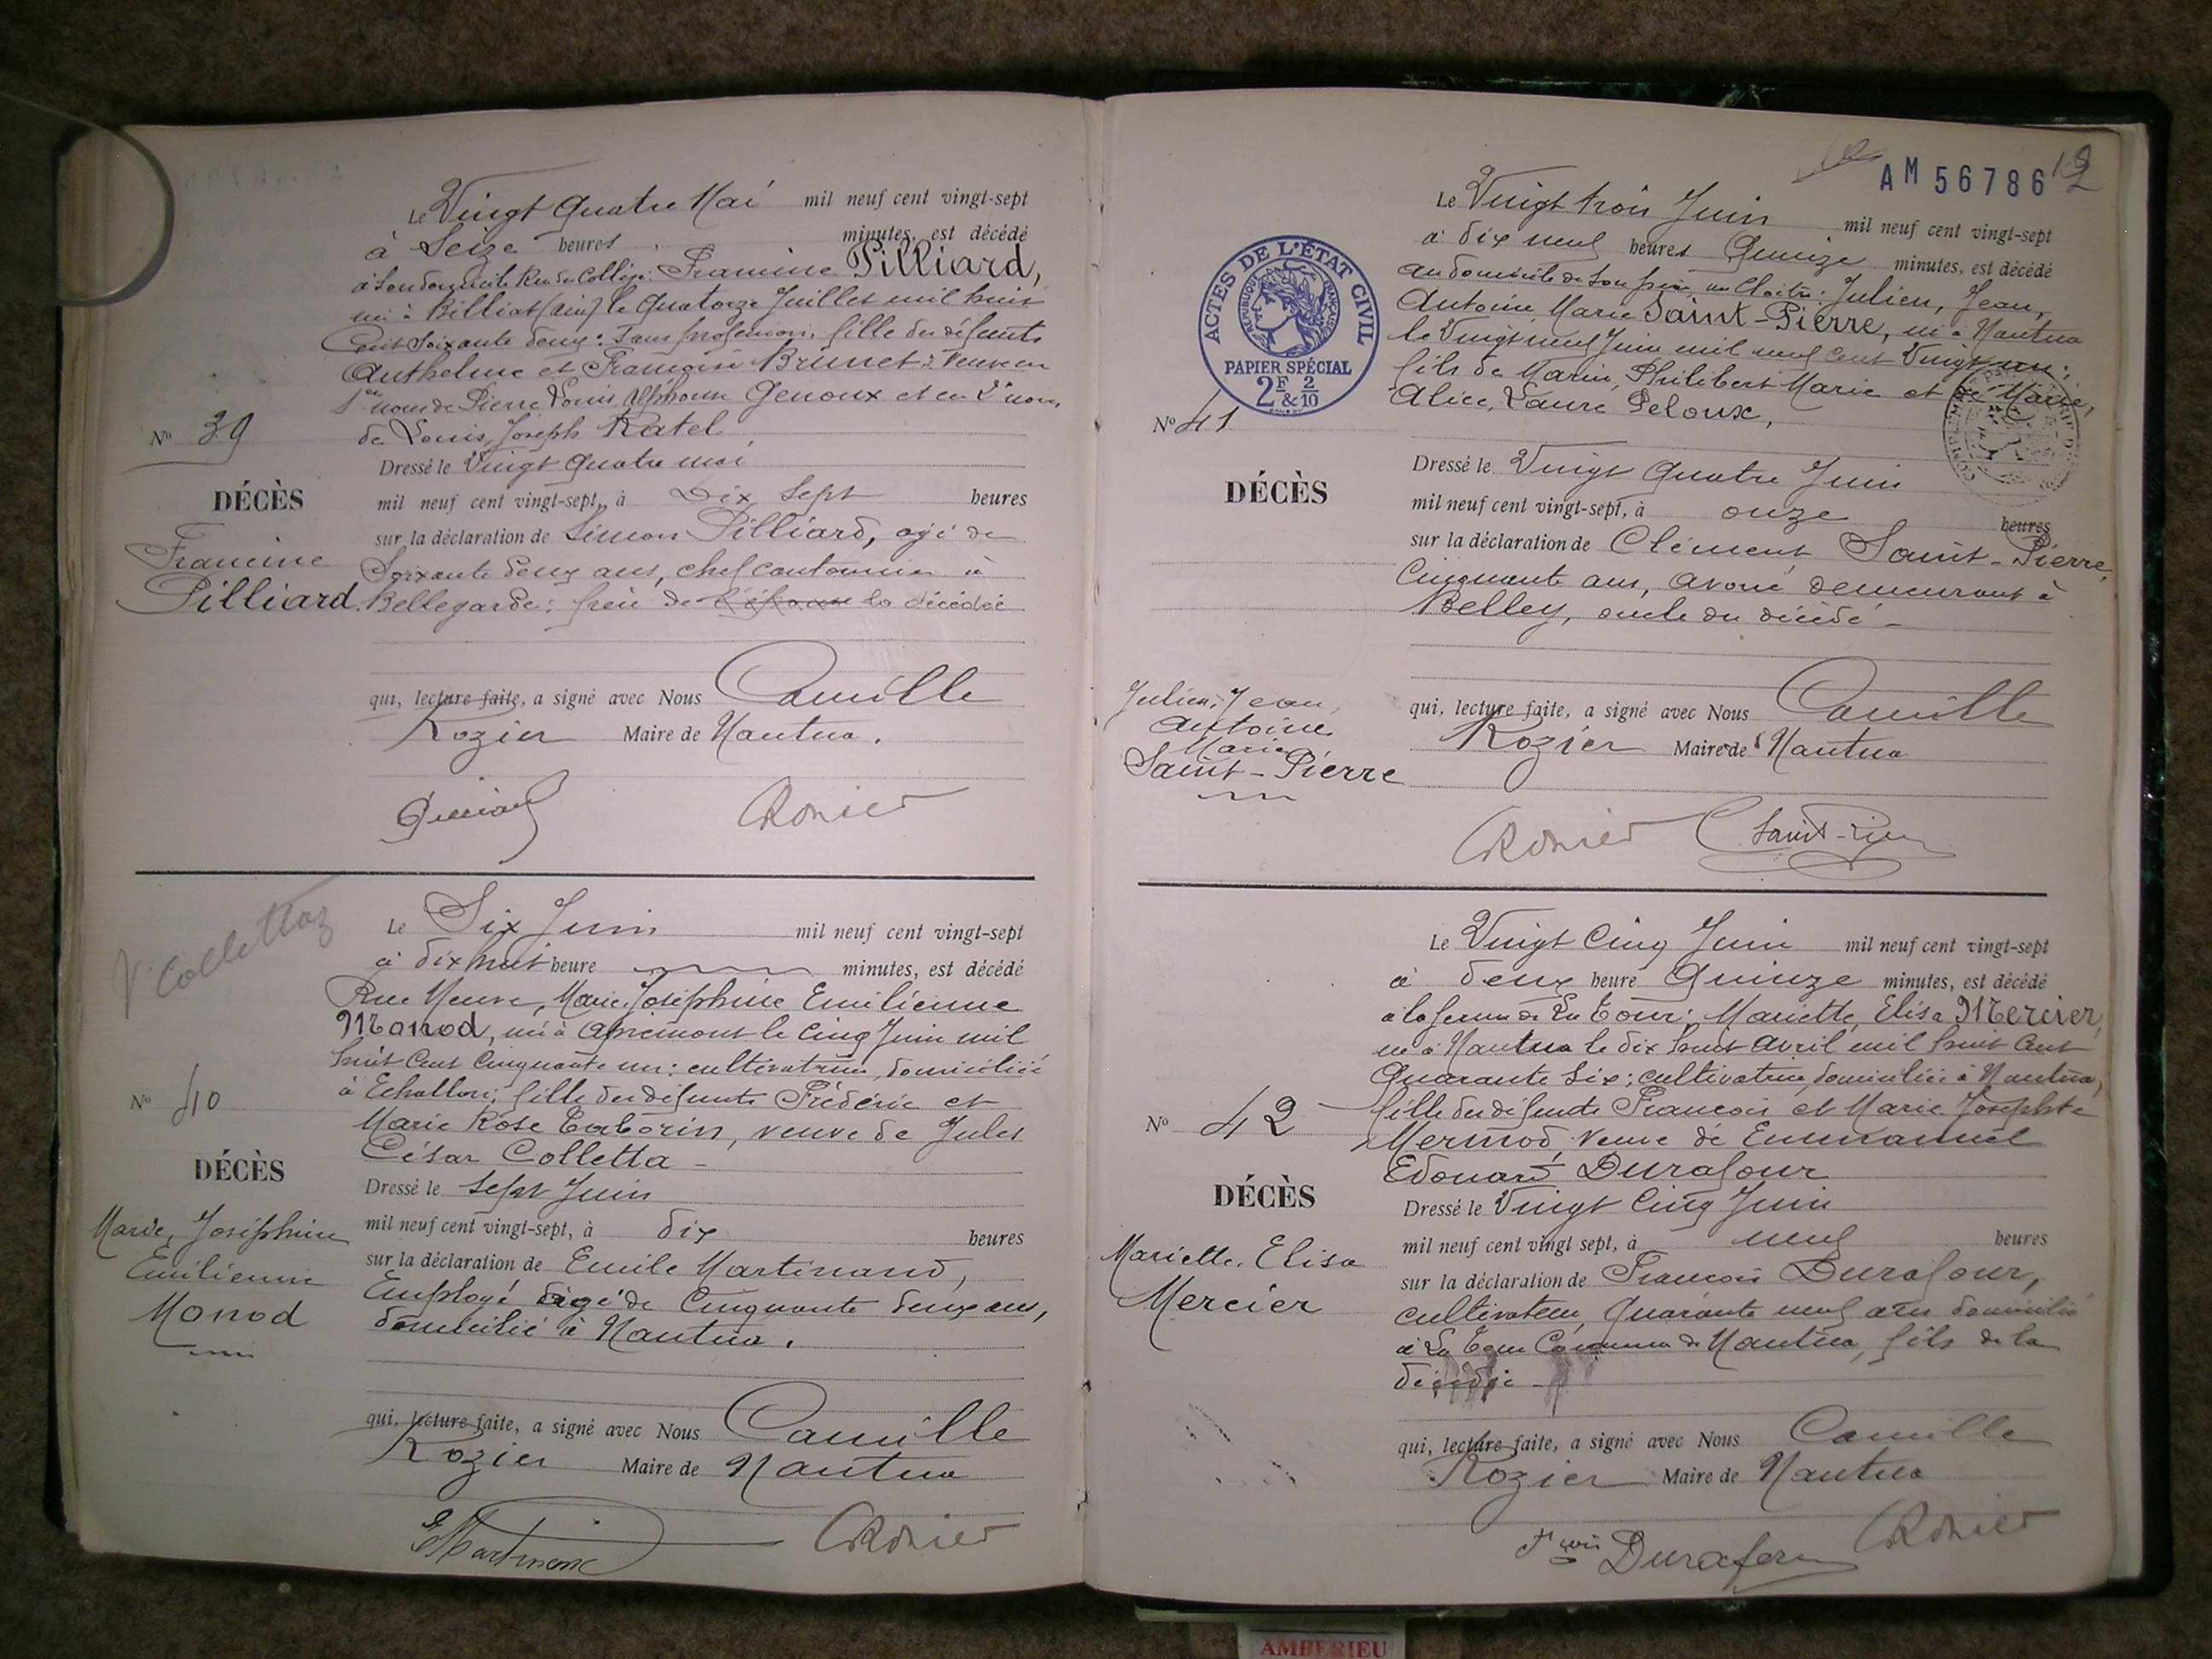 Le Vingt Quatre Mai mil neuf cent vingt-sept
à Seize heures minutes, est décédé
à son domicile Rue du Collège: Francine Pilliard,
né à Billiat (Ain) le Quatorze Juillet mil huit
Cent Soixante deux: Sans profession, fille des défunts
Anthelme et Françoise Brunet: Veuve en
1er nom de Pierre Louis Alphonse Genoux et en 2e nom
de Louis Joseph Ratel
Nº 39
Dressé le Vingt Quatre mai
mil neuf cent vingt-sept, à Dix Sept heures
DÉCÈS
Francine
Pilliard
sur la déclaration de Simon Pilliard, agé de
Soixante deux ans, chef cantonnier à
Bellegarde: frère de l'épouse la décédée
qui, lecture faite, a signé avec Nous Camille
Rozier Maire de Nantua.
Pilliard CRozier
V. Collettaz
Le Six Juin mil neuf cent vingt-sept
à dix huit heure minutes, est décédé
Rue Neuve, Marie Joséphine Emilienne
Monod, né à Apremont le Cinq Juin mil
huit Cent Cinquante un: cultivatrice, domiciliée
à Echallon; fille des défunts Frédéric et
Marie Rose Taborin, veuve de Jules
César Colletta -
Nº 40
DÉCÈS
Marie, Joséphine
Emilienne
Monod
Dressé le Sept Juin
mil neuf cent vingt-sept, à dix heures
sur la déclaration de Emile Martinand,
Employé agé de Cinquante deux ans,
domicilié à Nantua.
qui, lecture faite, a signé avec Nous Camille
Rozier Maire de Nantua
EMartinand CRozier
AM 56786
12
ACTES DE L'ÉTAT CIVIL
RÉPUBLIQUE FRANÇAISE
PAPIER SPÉCIAL
2F & 2/10
Le Vingt trois Juin mil neuf cent vingt-sept
à dix neuf heures Quinze minutes, est décédé
au domicile de son père, au Cloître: Julien, Jean,
Antoine, Marie Saint-Pierre, né à Nantua
le Vingt neuf Juin mil neuf Cent Vingt un:
fils de Marin, Philibert Marie et de Marie,
Alice, Laure Peloux,
Nº 41
DÉCÈS
Julien, Jean
Antoine
Marie
Saint-Pierre
Dressé le Vingt Quatre Juin
mil neuf cent vingt-sept, à onze heures
sur la déclaration de Clément Saint-Pierre,
Cinquante ans, avoué demeurant à
Belley, oncle du décédé -
qui, lecture faite, a signé avec Nous Camille
Rozier Maire de Nantua
CRozier C Saint-Pierre
Le Vingt Cinq Juin mil neuf cent vingt-sept
à deux heure Quinze minutes, est décédé
à la ferme de La Tour: Mariette, Elisa Mercier,
né à Nantua le dix huit avril mil huit Cent
Quarante Six; cultivatrice, domiciliée à Nantua,
fille des défunts François et Marie Josephte
Mermod, veuve de Emmanuel
Edouard Durafour
Nº 42
DÉCÈS
Mariette. Elisa
Mercier
Dressé le Vingt Cinq Juin
mil neuf cent vingt sept, à neuf heures
sur la déclaration de François Durafour,
cultivateur, Quarante neuf ans domicilié
à La Tour Commune de Nantua, fils de la
décédée -
qui, lecture faite, a signé avec Nous Camille
Rozier Maire de Nantua
Fçois Durafour CRozier
AMBERIEU